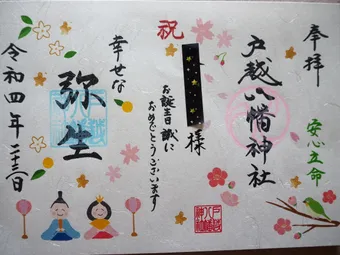 奉拝
安心立命
戸越八幡神社
祝
様
お誕生日誠に
おめでとうございます
幸せな
弥生
令和四年三十三日